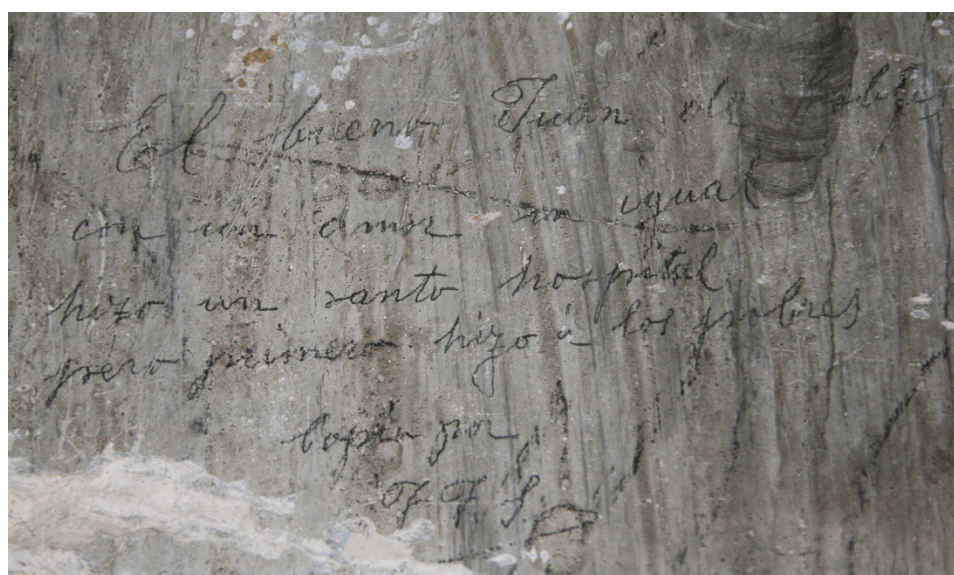 El bueno Juan de Robles
con un amor sin igual
hizo un santo hospital
pero primero hizo á los pobres
Copia por
F F S